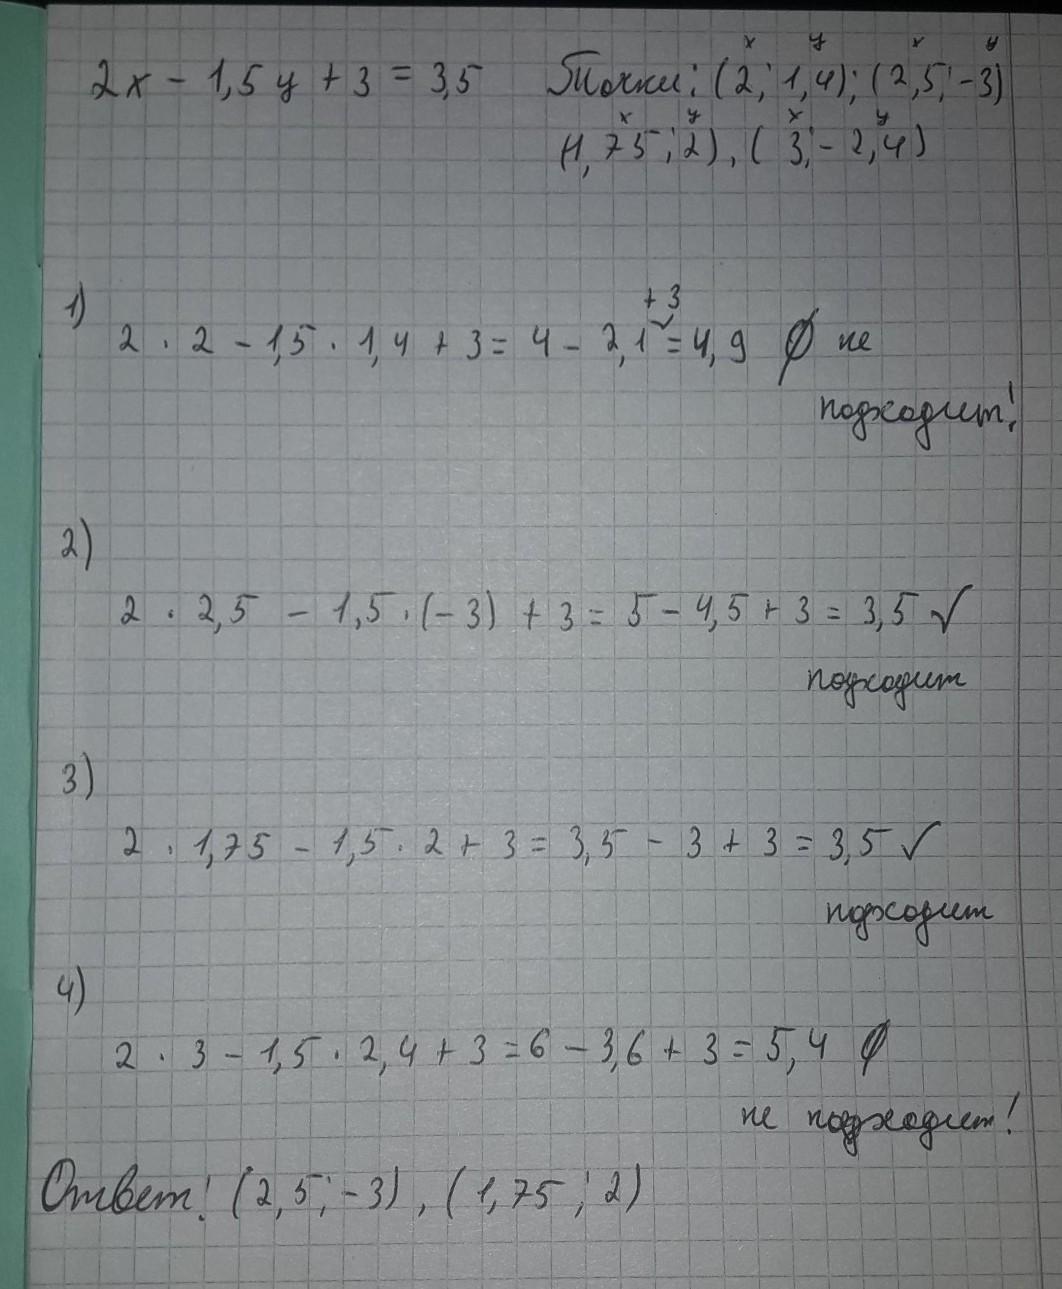 2x - 1,5y + 3 = 3,5 Точки: (2; 1,4); (2,5; -3)
x y x y
(1,75; 2), (3; -2,4)
x y x y
1)
+ 3
2 · 2 - 1,5 · 1,4 + 3 = 4 - 2,1 = 4,9 ∅ не
подходит!
2)
2 · 2,5 - 1,5 · (-3) + 3 = 5 - 4,5 + 3 = 3,5 ✓
подходит
3)
2 · 1,75 - 1,5 · 2 + 3 = 3,5 - 3 + 3 = 3,5 ✓
подходит
4)
2 · 3 - 1,5 · 2,4 + 3 = 6 - 3,6 + 3 = 5,4 ∅
не подходит!
Ответ: (2,5; -3), (1,75; 2)